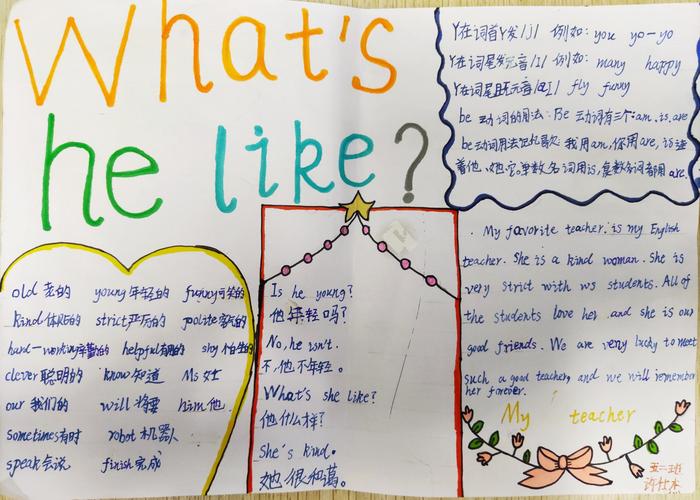 What's
he like?
Y在词首Y发/j/ 例如: you yo-yo
Y在词尾发元音/I/ 例如: many happy
Y在词尾且无元音/aI/ fly funny
be 动词的用法: Be 动词有三个:am.is.are
be动词用法 我用am,你用are,is连
着他、她、它。单数名词用is,复数名词都用are.
old 老的 young 年轻的 funny 可笑的
kind 体贴的 strict 严厉的 polite 客气的
hard-working 辛勤的 helpful 有用的 shy 怕生的
clever 聪明的 know 知道 Ms 女士
our 我们的 will 将要 him 他.
sometimes 有时 robot 机器人
speak 会说 finish 完成
Is he young?
他年轻吗?
No, he isn't.
不,他不年轻。
What's she like?
他什么样?
She's kind.
她很和蔼。
My favorite teacher is my English
teacher. She is a kind woman. She is
very strict with us students. All of
the students love her and she is our
good friends. We are very lucky to meet
such a good teacher, and we will remember
her forever.
My teacher
五二班